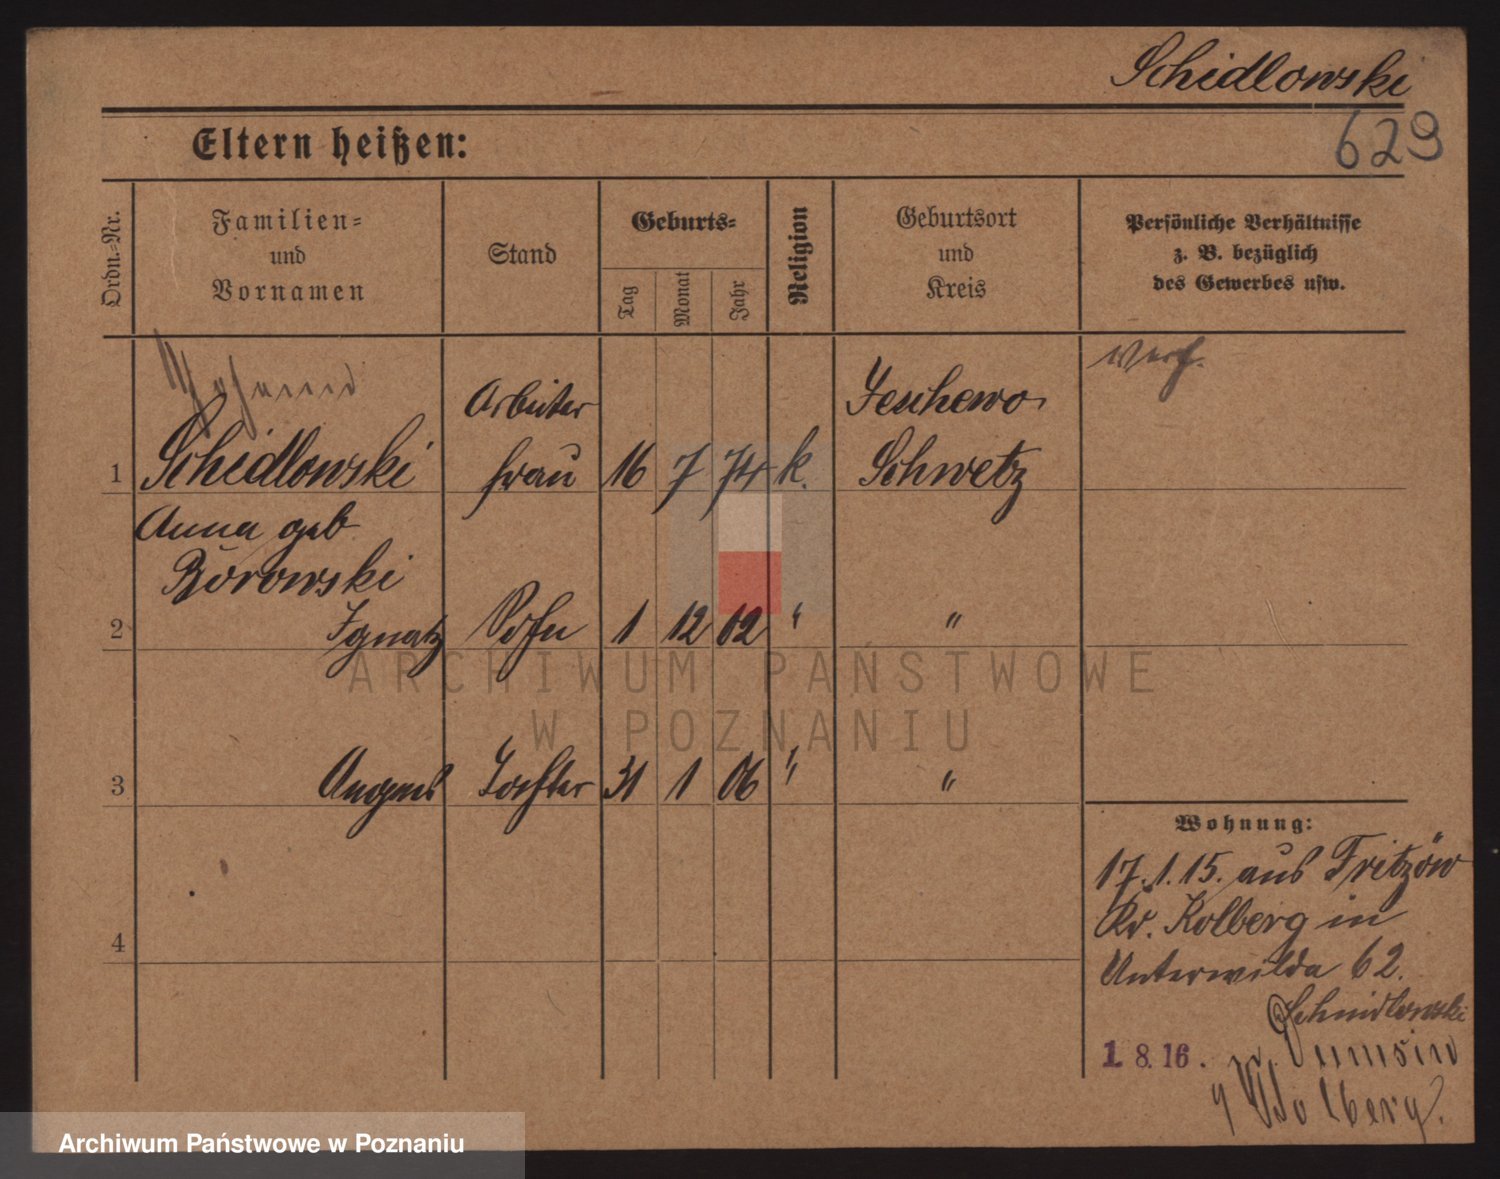 Schidlowski
629
Eltern heißen:
Ordn.-Nr.
Familien-
und
Vornamen
Stand
Geburts-
Tag
Monat
Jahr
Religion
Geburtsort
und
Kreis
Persönliche Verhältnisse
z. B. bezüglich
des Gewerbes usw.
Arbeiter
Jeschewo
1 Schidlowski frau 16 7 74 k. Schwetz
Anna geb
Borowski
2 Ignatz Sohn 1 12 02 " "
ARCHIWUM PAŃSTWOWE
W POZNANIU
3 Tochter 31 1 06 " "
Wohnung:
17.1.15. aus Fritzow
Kr. Kolberg in
4
Unterwilda 62.
Schmidlowski
1. 8. 16.
Archiwum Państwowe w Poznaniu